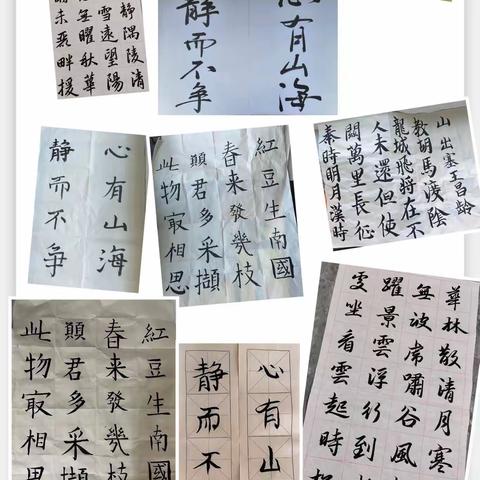 静隅陵清
雪遠望陽
無曜秋華
畔援
心有山海
静而不争
心有山海
静而不争
紅豆生南國
春来發幾枝
願君多采擷
此物㝡相思
秦時明月漢時
關萬里長征
人未還但使
龍城飛将在不
教胡馬渡陰
山出塞王昌龄
紅豆生南國
春来發幾枝
願君多采擷
此物㝡相思
心有山
静而不
華林散清月寒
無波虎嘯谷風
躍景雲浮行到
處坐看雲起時